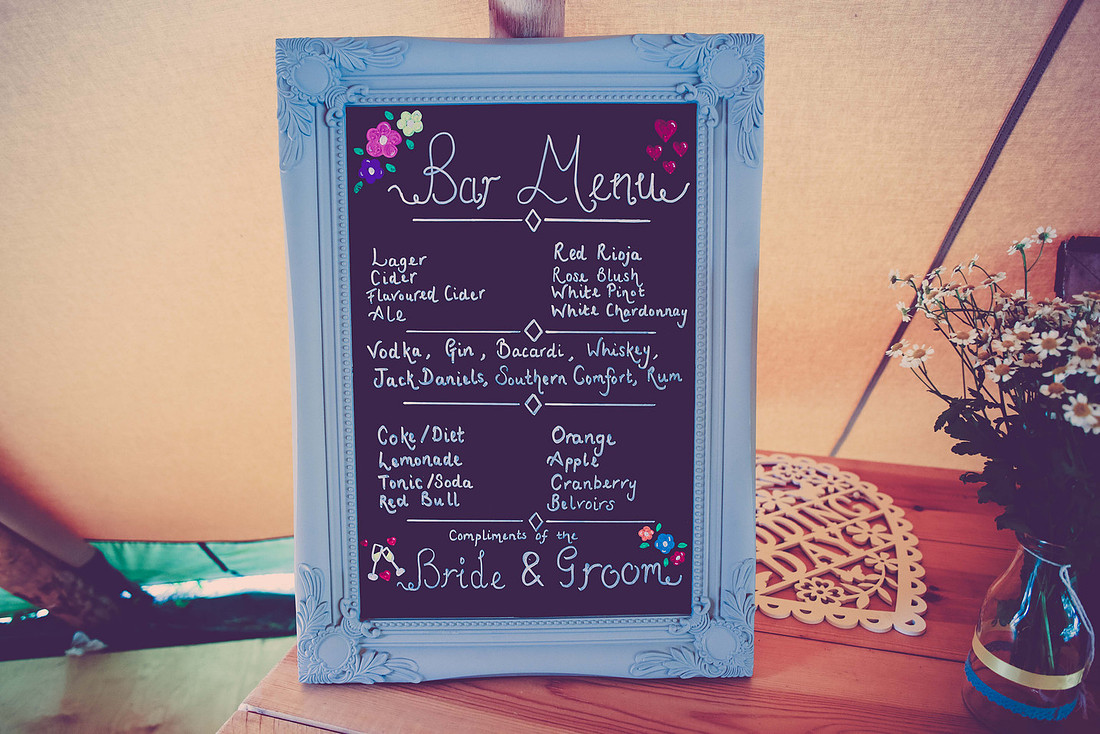 Bar Menu
Lager
Cider
Flavoured Cider
Ale
Red Rioja
Rose Blush
White Pinot
White Chardonnay
Vodka, Gin, Bacardi, Whiskey,
Jack Daniels, Southern Comfort, Rum
Coke/Diet
Lemonade
Tonic/Soda
Red Bull
Orange
Apple
Cranberry
Belvoirs
Compliments of the
Bride & Groom
DAY